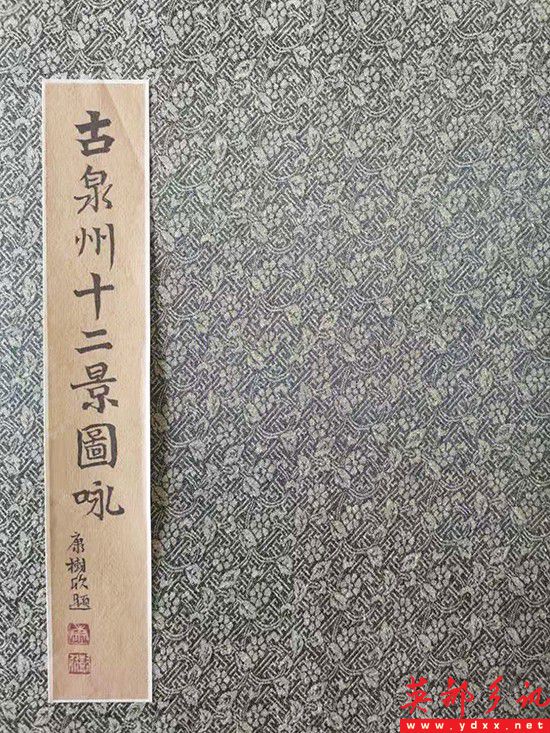 古泉州十二景圖咏
康樹欣題
英都乡讯
www.ydxx.net